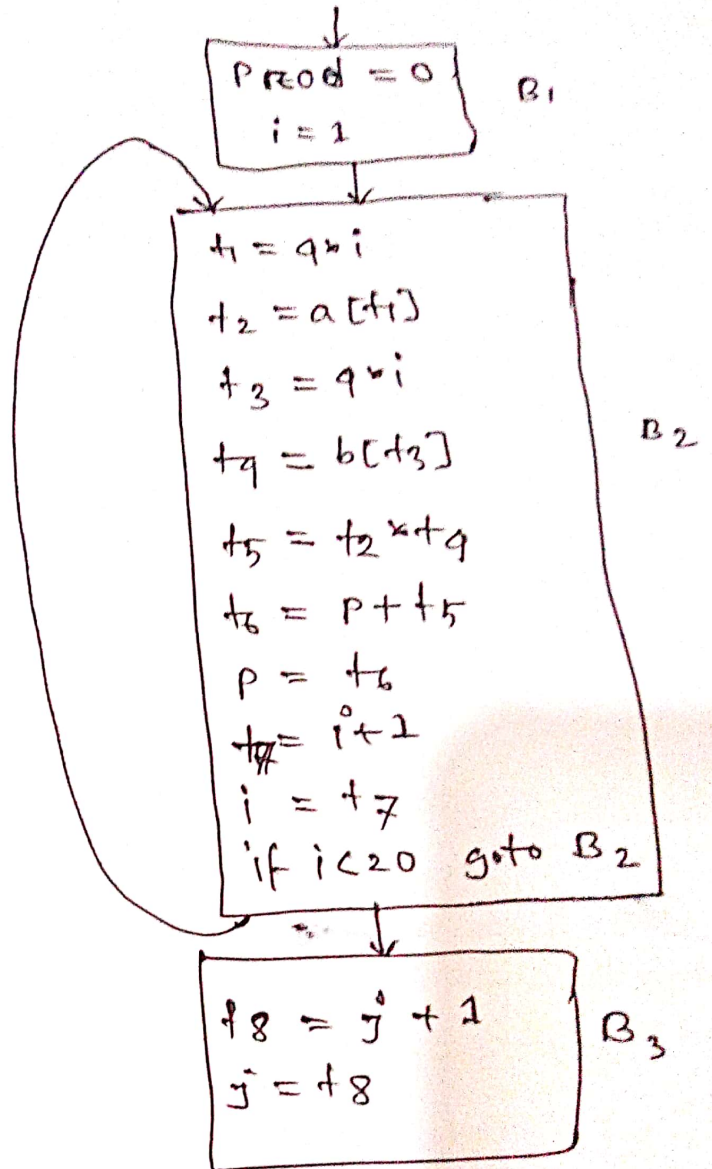 prod = 0
i = 1
B1
t1 = 4*i
t2 = a[t1]
t3 = 4*i
t4 = b[t3]
t5 = t2*t4
t6 = p+t5
p = t6
t7 = i+1
i = t7
if i<20 goto B2
B2
t8 = j+1
j = t8
B3